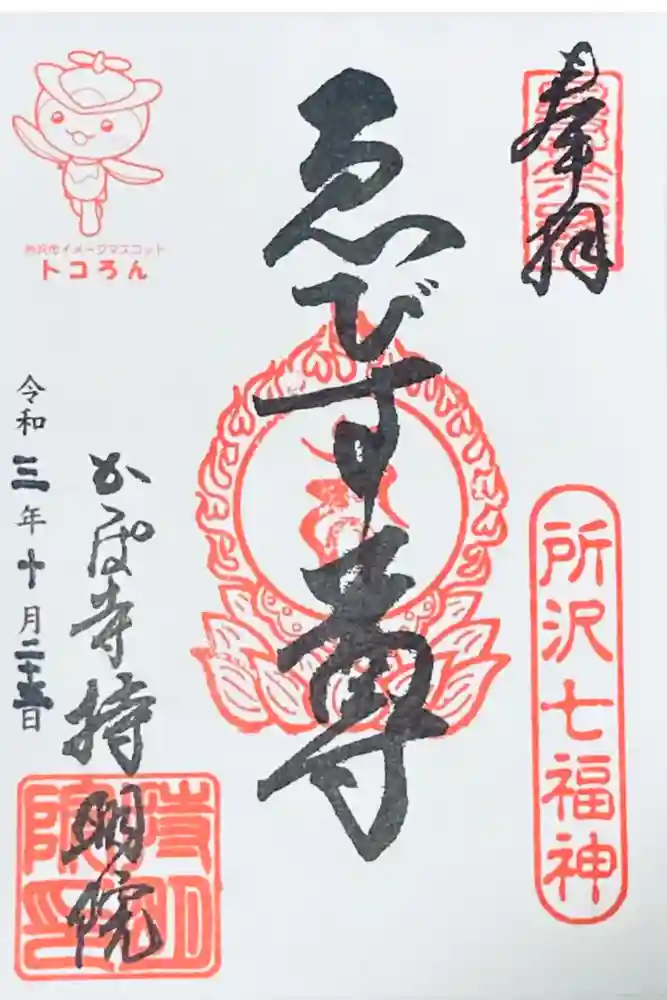 奉拝
所沢七福神
ゑびす尊
かっぱ寺持明院
令和三年十月二十五日
所沢市イメージマスコット
トコろん
持明院印